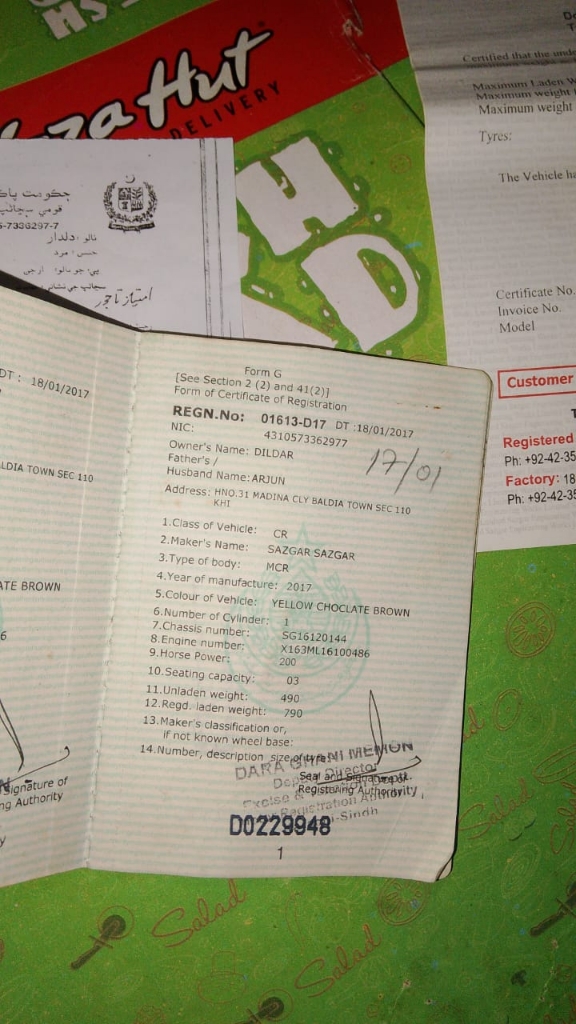 HS
Pizza Hut
DELIVERY
HD
Certified that the unde
Maximum Laden W
Maximum weight
Maximum weight
Tyres:
The Vehicle ha
Certificate No.
Invoice No.
Model
Customer
Registered
Ph: +92-42-35
Factory: 18
Ph: +92-42-35
حڪومت پاڪ
قومي سڃاڻپ
5-7336297-7
نالو: دلدار
جنس: مرد
امتیاز تاجور
DT : 18/01/2017
LDIA TOWN SEC 110
ATE BROWN
6
Signature of
ng Authority
Form G
[See Section 2 (2) and 41(2)]
Form of Certificate of Registration
REGN.No: 01613-D17 DT :18/01/2017
NIC: 4310573362977
17/01
Owner's Name: DILDAR
Father's /
Husband Name: ARJUN
Address: HNO.31 MADINA CLY BALDIA TOWN SEC 110
KHI
1.Class of Vehicle: CR
2.Maker's Name: SAZGAR SAZGAR
3.Type of body: MCR
4.Year of manufacture: 2017
5.Colour of Vehicle: YELLOW CHOCLATE BROWN
6.Number of Cylinder: 1
7.Chassis number: SG16120144
8.Engine number: X163ML16100486
9.Horse Power: 200
10.Seating capacity: 03
11.Unladen weight: 490
12.Regd. laden weight: 790
13.Maker's classification or,
if not known wheel base:
14.Number, description size of tyre
DARA GHANI MEMON
Deputy Director
Seal and Signature
Excise & Taxation Deptt.
Registering Authority
Registration Authority
-Sindh
D0229948
1
Salad
Salad
Salad